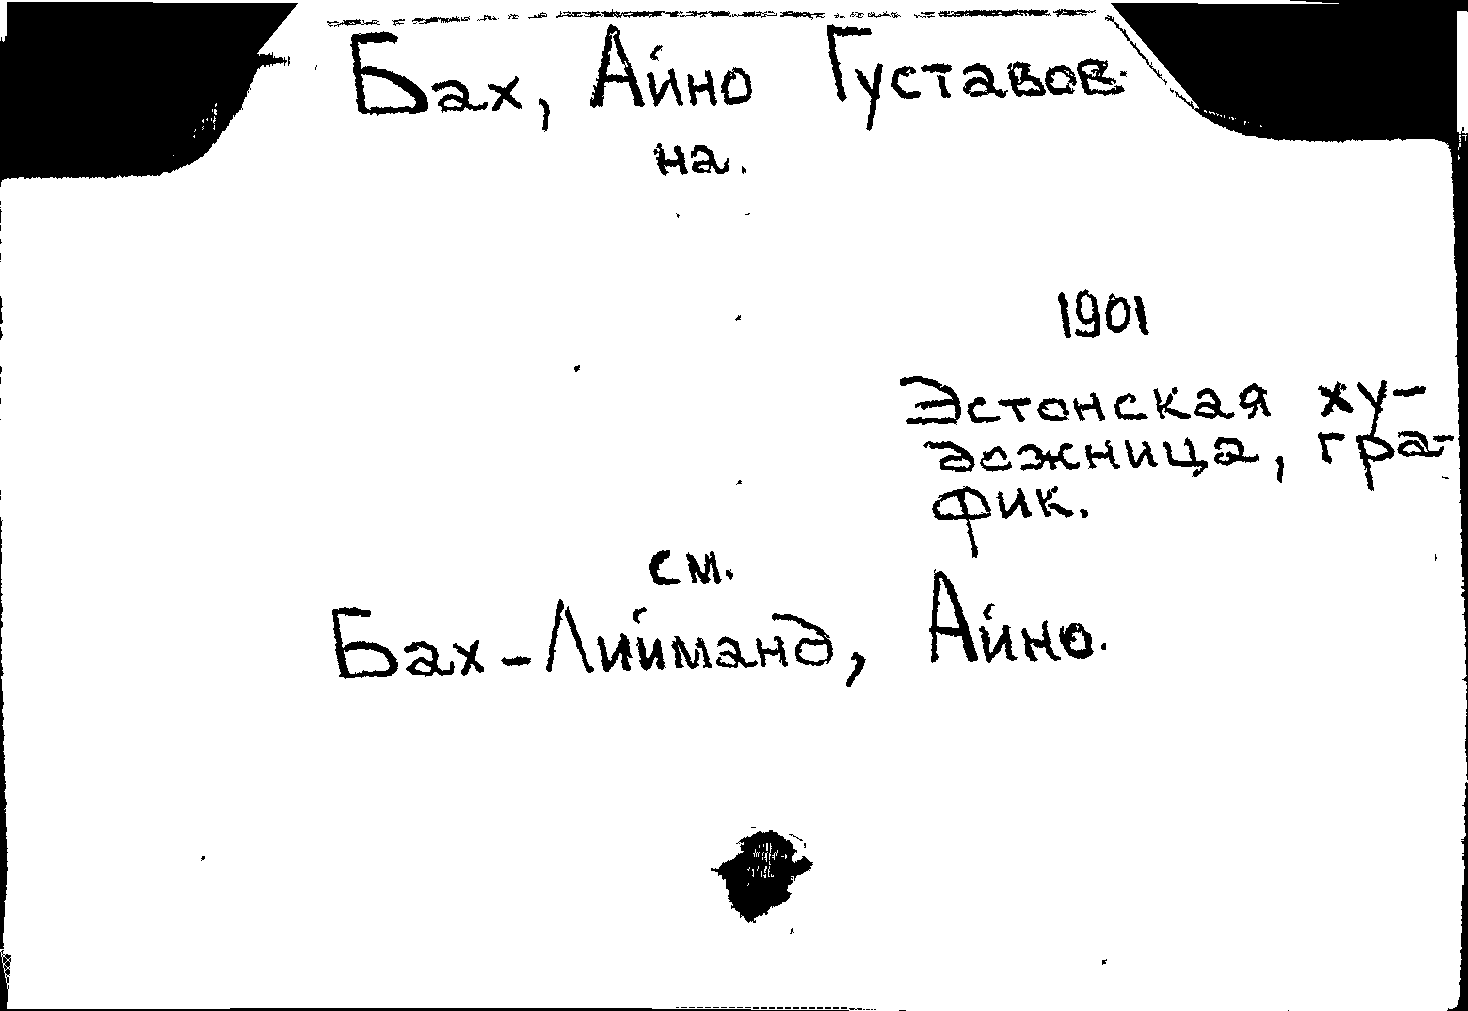 Бах, Айно Густавов-
на.
1901
Эстонская ху-
дожница, гра-
фик.
см.
Бах-Лийманд, Айно.